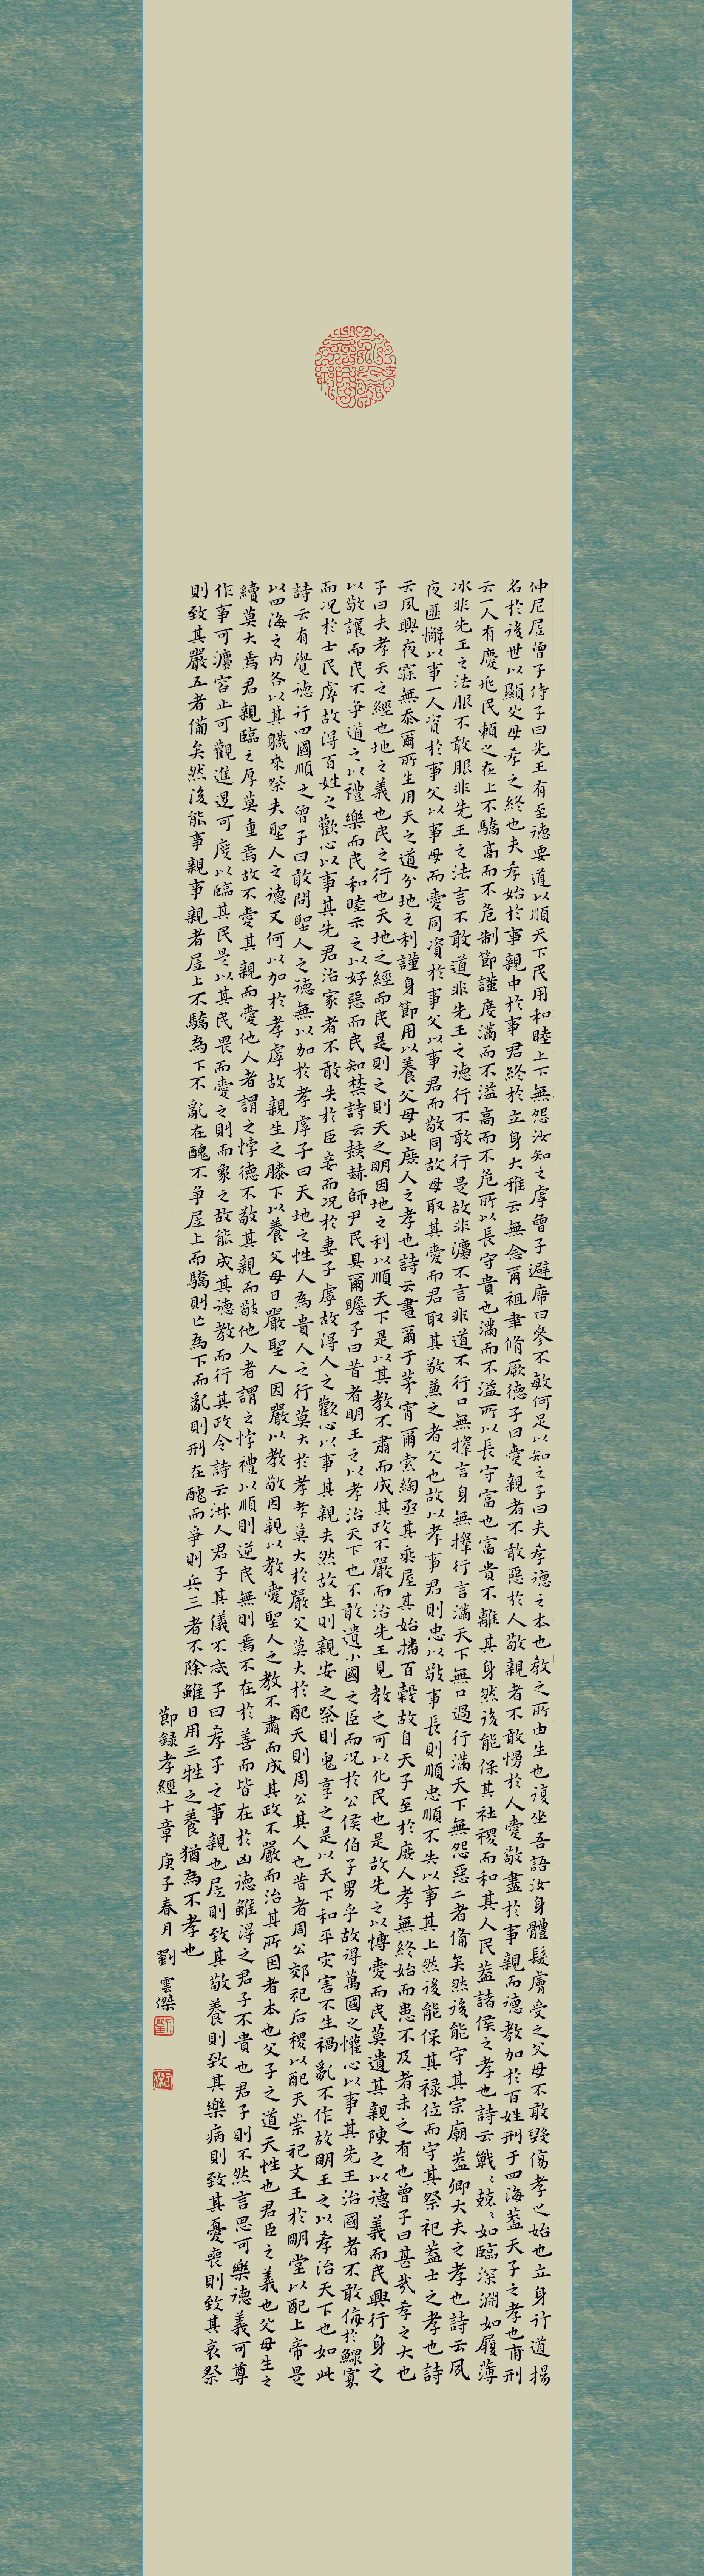 仲尼凥曾子侍子曰先王有至德要道以順天下民用和睦上下無怨汝知之虖曾子避席曰參不敏何足以知之子曰夫孝德之本也教之所由生也復坐吾語汝身體髮膚受之父母不敢毀傷孝之始也立身行道揚
名於後世以顯父母孝之終也夫孝始於事親中於事君終於立身大雅云無念爾祖聿脩厥德子曰愛親者不敢惡於人敬親者不敢慢於人愛敬盡於事親而德教加於百姓刑于四海蓋天子之孝也甫刑
云一人有慶兆民賴之在上不驕高而不危制節謹度滿而不溢高而不危所以長守貴也滿而不溢所以長守富也富貴不離其身然後能保其社稷而和其人民蓋諸侯之孝也詩云戰〻兢〻如臨深淵如履薄
冰非先王之法服不敢服非先王之法言不敢道非先王之德行不敢行是故非灋不言非道不行口無擇言身無擇行言滿天下無口過行滿天下無怨惡二者備矣然後能守其宗廟蓋卿大夫之孝也詩云夙
夜匪懈以事一人資於事父以事母而愛同資於事父以事君而敬同故母取其愛而君取其敬兼之者父也故以孝事君則忠以敬事長則順忠順不失以事其上然後能保其祿位而守其祭祀蓋士之孝也詩
云夙興夜寐無忝爾所生用天之道分地之利謹身節用以養父母此庶人之孝也詩云晝爾于茅宵爾索綯亟其乘屋其始播百穀故自天子至於庶人孝無終始而患不及者未之有也曾子曰甚哉孝之大也
子曰夫孝天之經也地之義也民之行也天地之經而民是則之則天之明因地之利以順天下是以其教不肅而成其政不嚴而治先王見教之可以化民也是故先之以博愛而民莫遺其親陳之以德義而民興行身之
以敬讓而民不爭道之以禮樂而民和睦示之以好惡而民知禁詩云赫赫師尹民具爾瞻子曰昔者明王之以孝治天下也不敢遺小國之臣而況於公侯伯子男乎故得萬國之懽心以事其先王治國者不敢侮於鰥寡
而況於士民虖故得百姓之歡心以事其先君治家者不敢失於臣妾而況於妻子虖故得人之歡心以事其親夫然故生則親安之祭則鬼享之是以天下和平災害不生禍亂不作故明王之以孝治天下也如此
詩云有覺德行四國順之曾子曰敢問聖人之德無以加於孝虖子曰天地之性人為貴人之行莫大於孝孝莫大於嚴父嚴父莫大於配天則周公其人也昔者周公郊祀后稷以配天崇祀文王於明堂以配上帝是
以四海之內各以其職來祭夫聖人之德又何以加於孝虖故親生之膝下以養父母日嚴聖人因嚴以教敬因親以教愛聖人之教不肅而成其政不嚴而治其所因者本也父子之道天性也君臣之義也父母生之
續莫大焉君親臨之厚莫重焉故不愛其親而愛他人者謂之悖德不敬其親而敬他人者謂之悖禮以順則逆民無則焉不在於善而皆在於凶德雖得之君子不貴也君子則不然言思可樂德義可尊
作事可灋容止可觀進退可度以臨其民是以其民畏而愛之則而象之故能成其德教而行其政令詩云淑人君子其儀不忒子曰孝子之事親也凥則致其敬養則致其樂病則致其憂喪則致其哀祭
則致其嚴五者備矣然後能事親事親者凥上不驕為下不亂在醜不爭凥上而驕則亡為下而亂則刑在醜而爭則兵三者不除雖日用三牲之養猶為不孝也
節錄孝經十章 庚子春月 劉雲傑